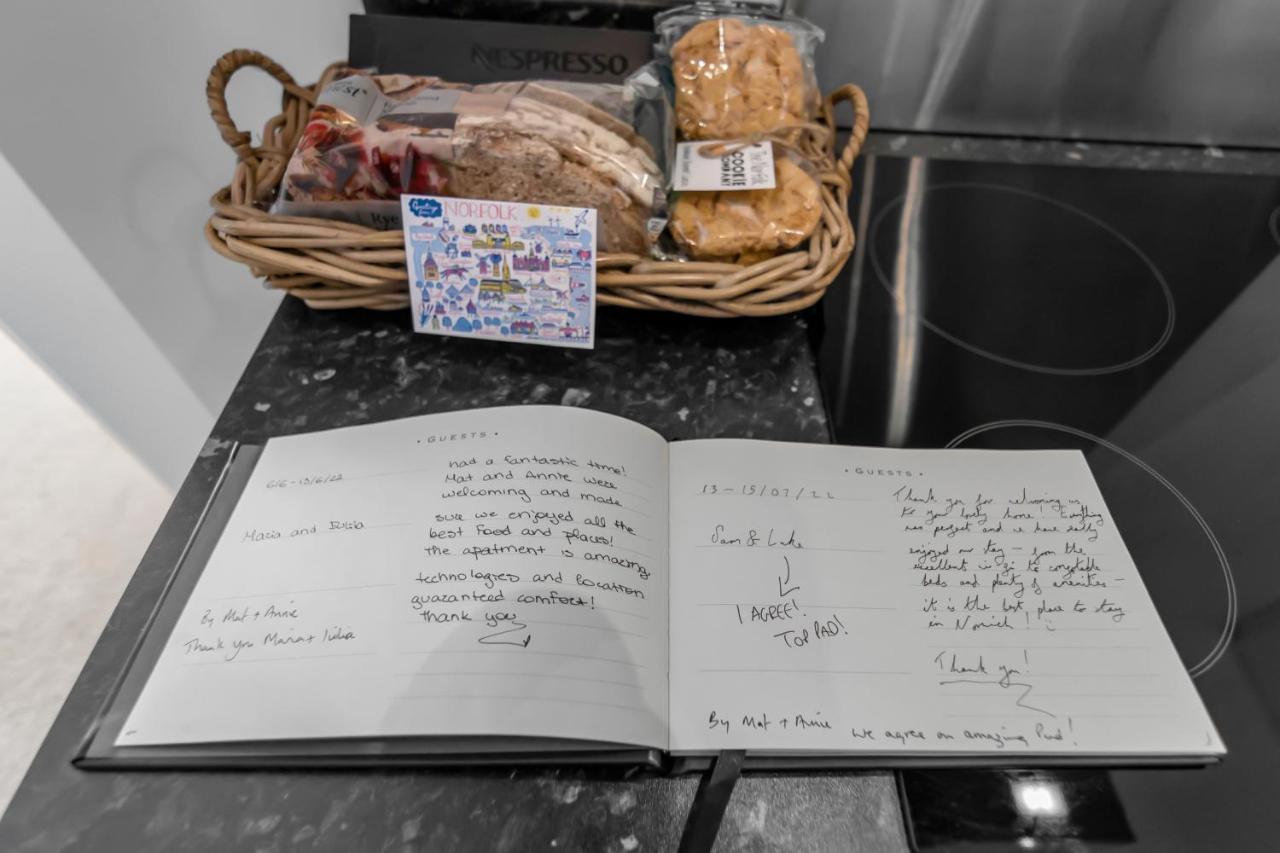 NESPRESSO
Rye
The Norfolk
COOKIE
COMPANY
Greetings from
NORFOLK
• GUESTS •
6/6-13/6/22
Maria and Iulia
By Mat + Annie
Thank you Maria + Iulia
had a fantastic time!
Mat and Annie were
welcoming and made
sure we enjoyed all the
best food and places!
the apatment is amazing
technologies and location
guaranteed comfort!
thank you
• GUESTS •
13-15/07/22
Sam & Luke
I AGREE!
TOP PAD!
Thank you for welcoming us
to your lovely home! Everything
was perfect and we have really
enjoyed our stay - from the
excellent to comfortable
beds and plenty of amenities -
it is the best place to stay
in Norwich!
Thank you!
By Mat + Annie we agree an amazing Pad!